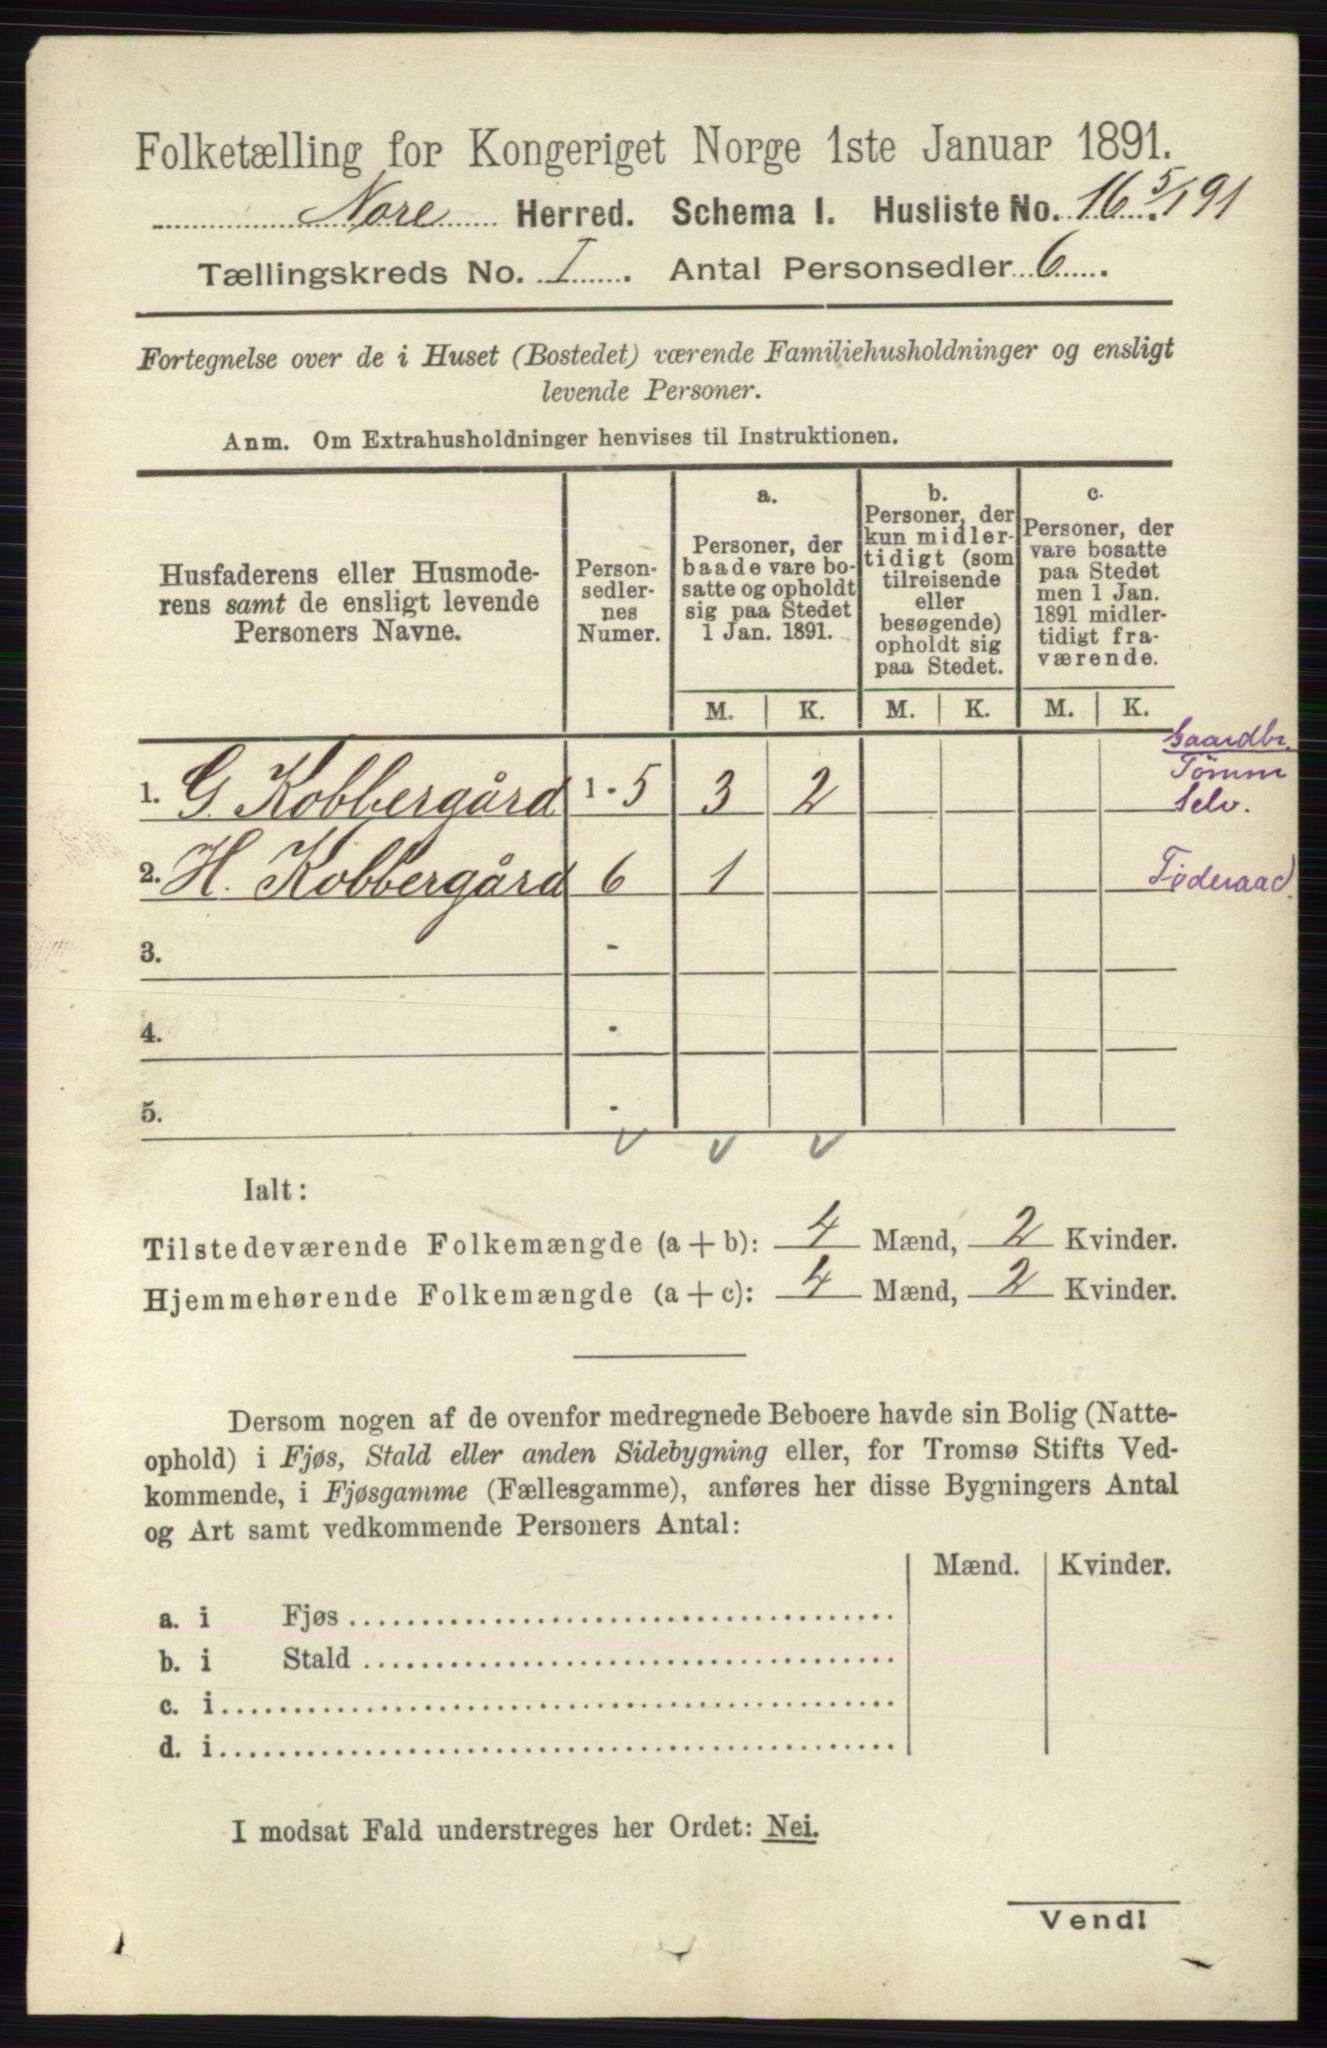 Folketælling for Kongeriget Norge 1ste Januar 1891.
Nore Herred. Schema I. Husliste No. 16 5/1 91
Tællingskreds No. I. Antal Personsedler 6
Fortegnelse over de i Huset (Bostedet) værende Familiehusholdninger og ensligt
levende Personer.
Anm. Om Extrahusholdninger henvises til Instruktionen.
Husfaderens eller Husmode-
rens samt de ensligt levende
Personers Navne.
Person-
sedler-
nes
Numer.
a.
Personer, der
baade vare bo-
satte og opholdt
sig paa Stedet
1 Jan. 1891.
b.
Personer, der
kun midler-
tidigt (som
tilreisende
eller
besøgende)
opholdt sig
paa Stedet.
c.
Personer, der
vare bosatte
paa Stedet
men 1 Jan.
1891 midler-
tidigt fra-
værende.
M. K. M. K. M. K.
1. G. Kobbergård 1 - 5 3 2 Gaardbr.
Tømm
Selv.
2. H. Kobbergård 6 1 Føderaad.
3. -
4. -
5. -
Ialt:
Tilstedeværende Folkemængde (a + b): 4 Mænd, 2 Kvinder.
Hjemmehørende Folkemængde (a + c): 4 Mænd, 2 Kvinder.
Dersom nogen af de ovenfor medregnede Beboere havde sin Bolig (Natte-
ophold) i Fjøs, Stald eller anden Sidebygning eller, for Tromsø Stifts Ved-
kommende, i Fjøsgamme (Fællesgamme), anføres her disse Bygningers Antal
og Art samt vedkommende Personers Antal:
Mænd. Kvinder.
a. i Fjøs
b. i Stald
c. i
d. i
I modsat Fald understreges her Ordet: Nei.
Vend!